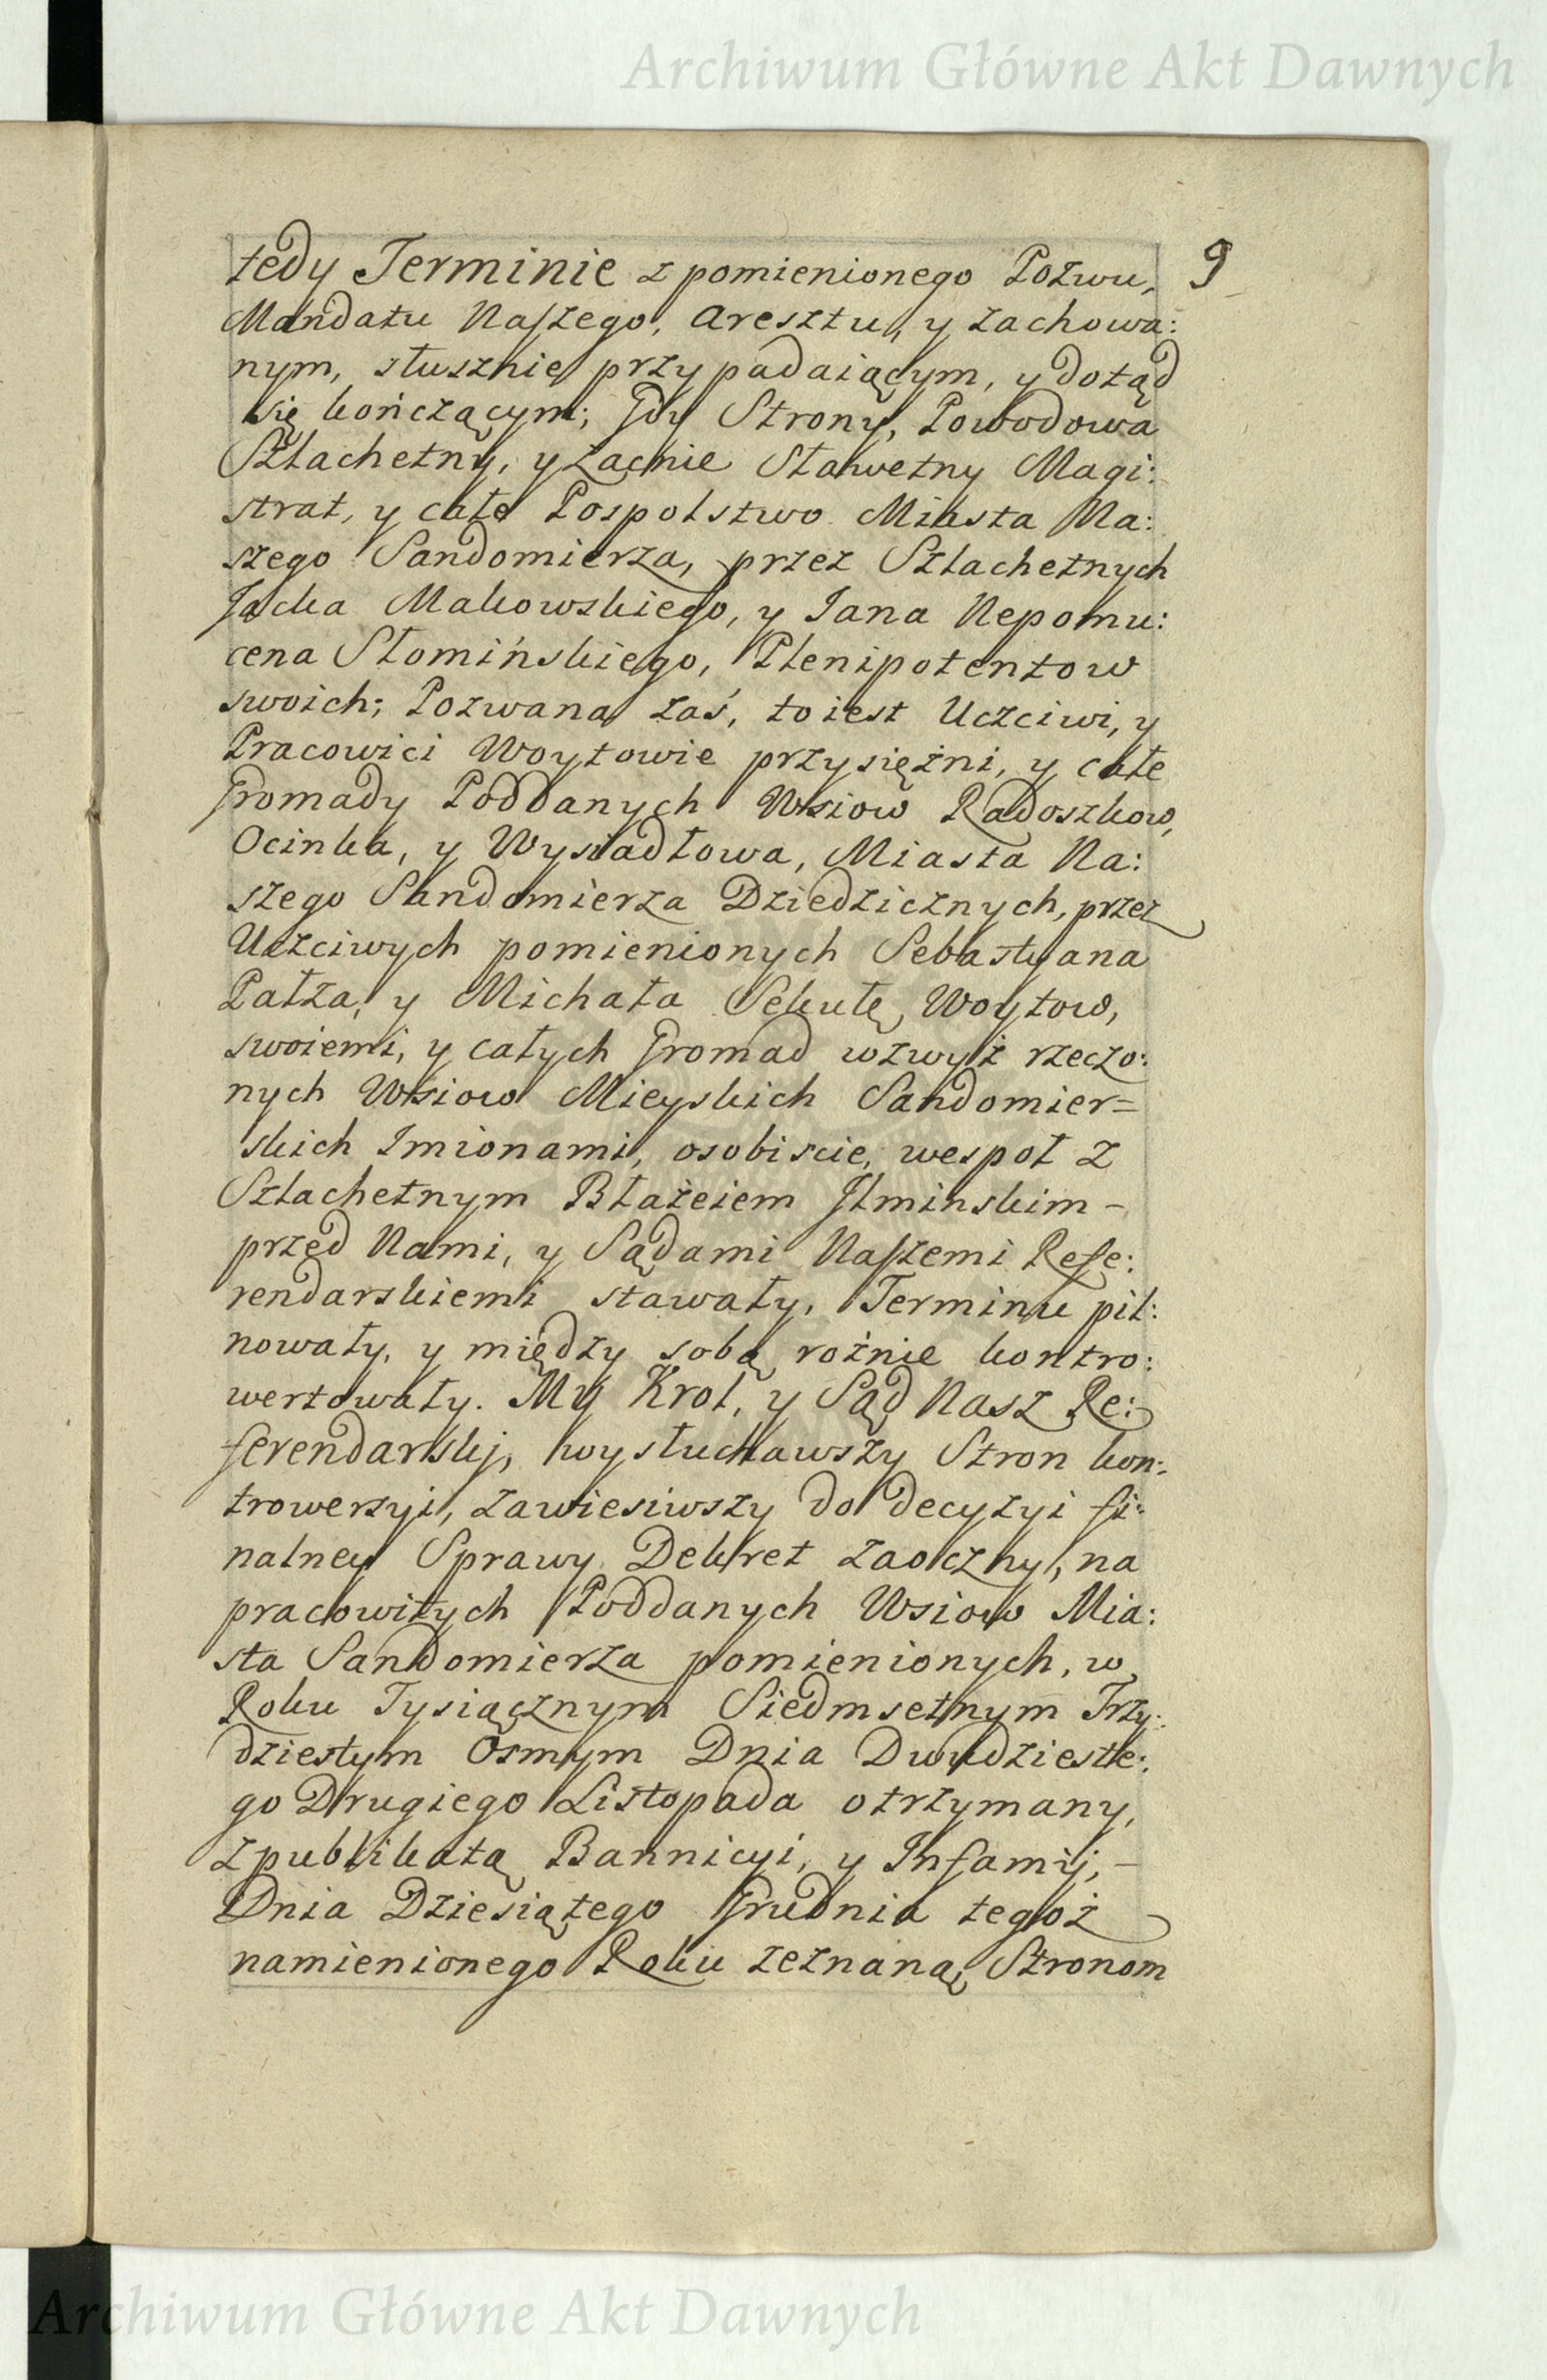 Archiwum Główne Akt Dawnych
9
tedy Terminie z pomienionego Pozwu,
Mandatu Naszego, Aresztu, y zachowa:
nym, słusznie przypadaiącym, y dotąd
się kończącym; Gdy Strony, Powodowa
Szlachetny, y Zacnie Sławetny Magi:
strat, y całe Pospolstwo Miasta Na:
szego Sandomierza, przez Szlachetnych
Jacka Makowskiego, y Jana Nepomu:
cena Słomińskiego, Plenipotentow
swoich; Pozwana zaś, to iest Uczciwi, y
Pracowici Woytowie przysiężni, y całe
Gromady Poddanych Wsiow Radoszkow,
Ocinka, y Wysiadłowa, Miasta Na:
szego Sandomierza Dziedzicznych, przez
Uczciwych pomienionych Sebastyana
Patza, y Michała Sekutę, Woytow,
swoiemi, y całych Gromad wzwyż rzeczo:
nych Wsiow Mieyskich Sandomier=
skich Imionami, osobiscie, wespoł z
Szlachetnym Błażeiem Ilminskim -
przed Nami, y Sądami Naszemi Refe:
rendarskiemi stawały, Terminu pil:
nowały, y między sobą rożnie kontro:
wertowały. My Krol, y Sąd Nasz Re:
ferendarskj, wysłuchawszy Stron kon:
trowersyi, zawiesiwszy do decyzyi fi:
nalney Sprawy Dekret zaoczny, na
pracowitych Poddanych Wsiow Mia:
sta Sandomierza pomienionych, w
Roku Tysiącznym Siedmsetnym Trzy:
dziestym Osmym Dnia Dwudzieste:
go Drugiego Listopada otrzymany,
z publikatą Bannicyi, y Infamij, -
Dnia Dziesiątego Grudnia tegoż
namienionego Roku zeznaną, Stronom
Archiwum Główne Akt Dawnych